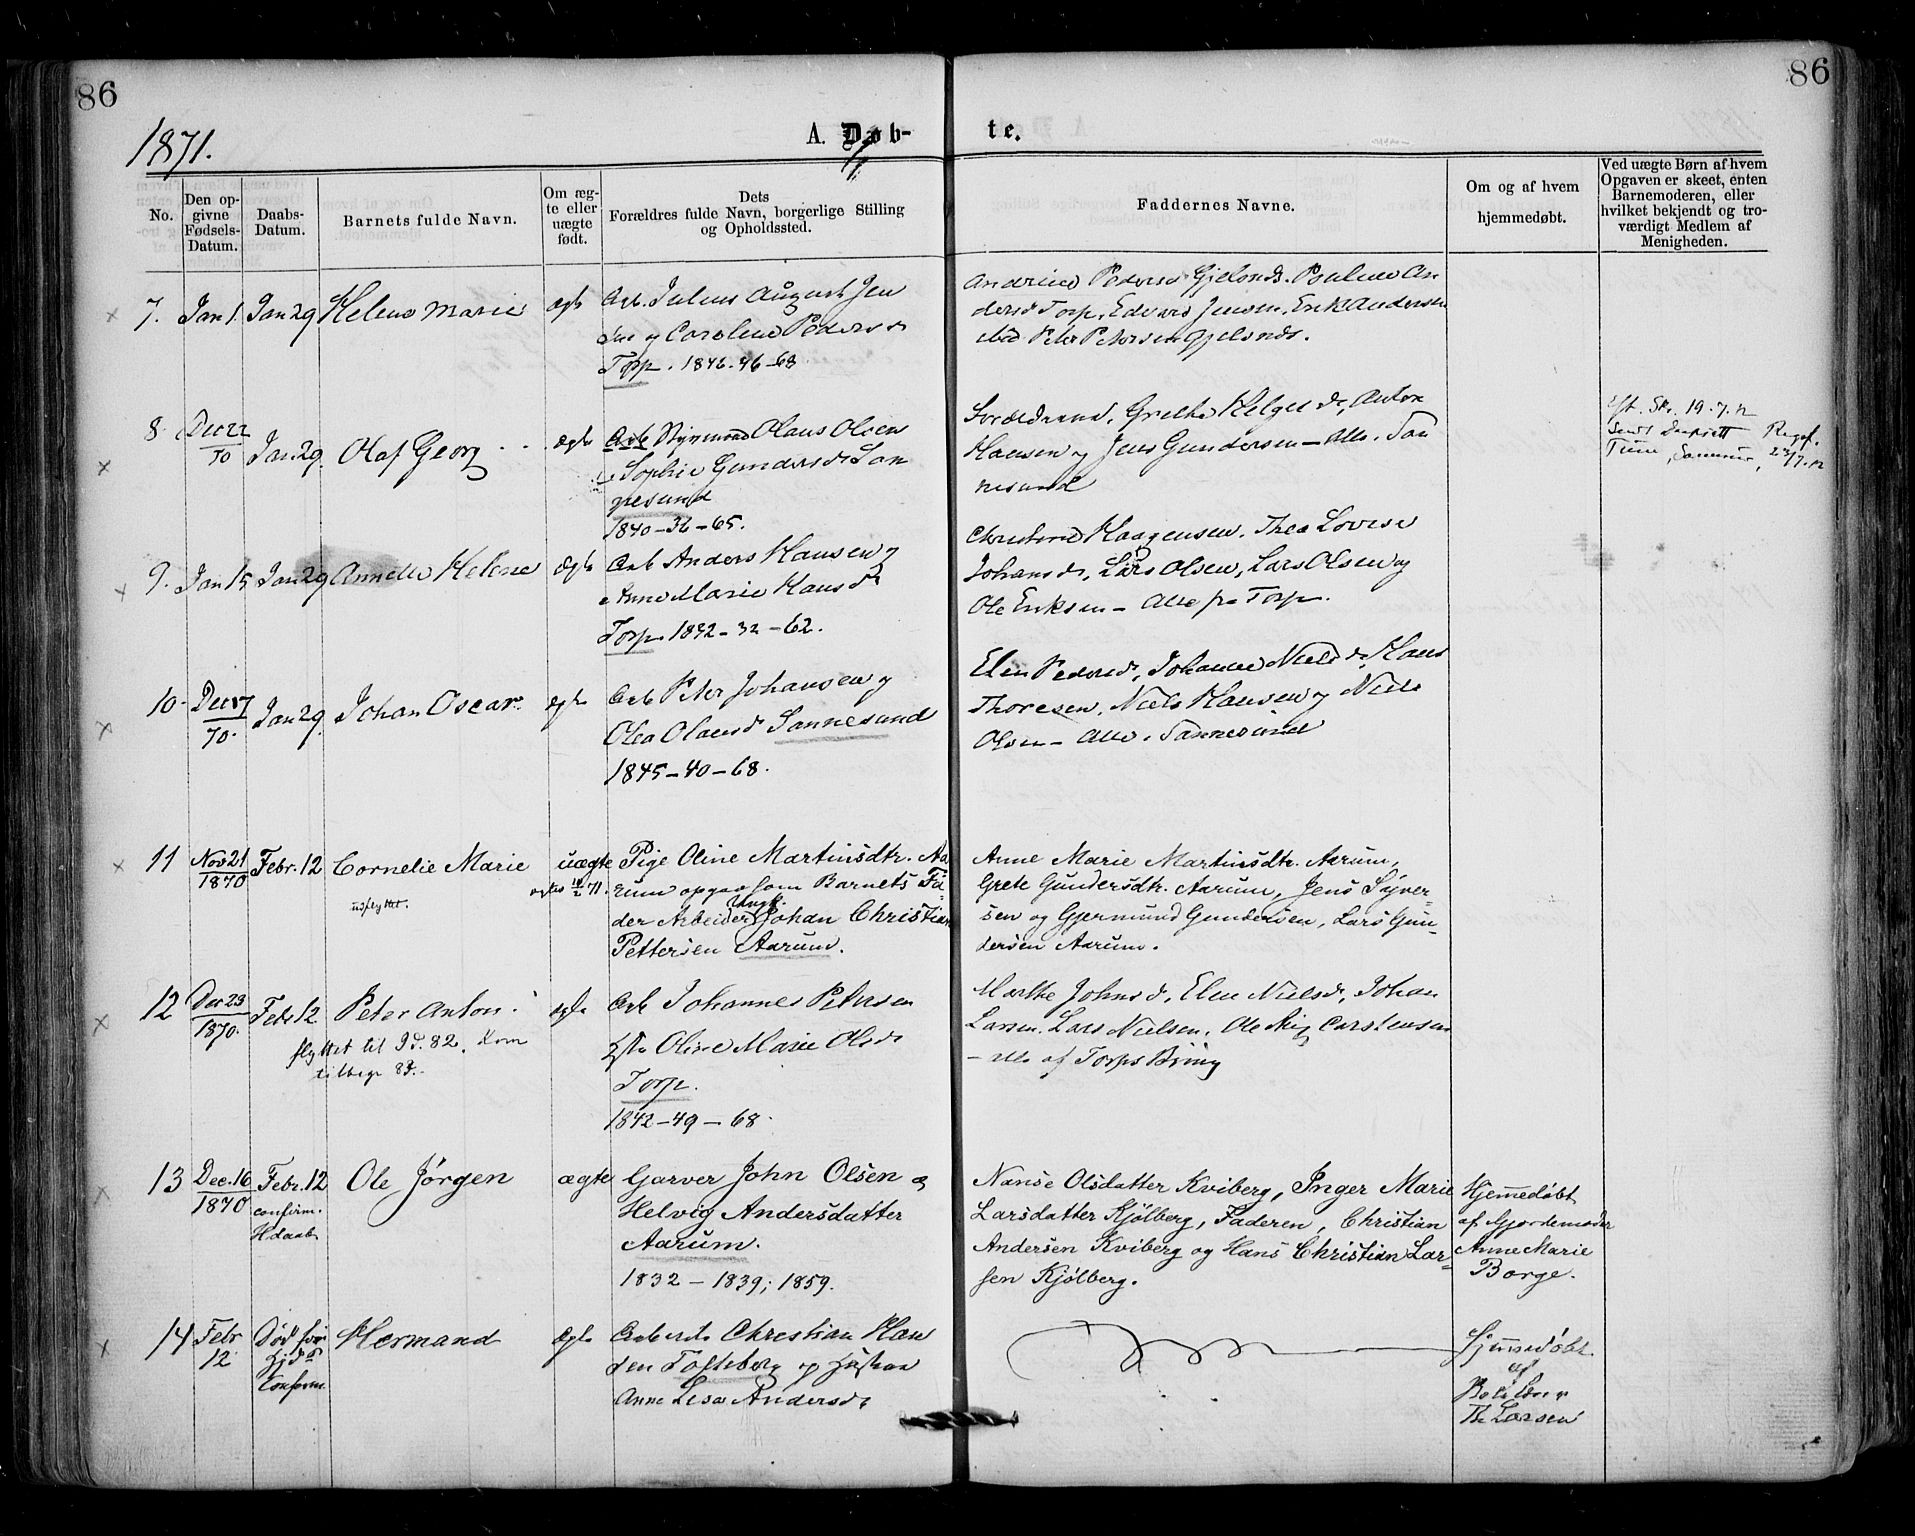 86
86
1871.
A. Døb-
te.
No.
Den op-
givne
Fødsels-
Datum.
Daabs-
Datum.
Barnets fulde Navn.
Om æg-
te eller
uægte
født.
Dets
Forældres fulde Navn, borgerlige Stilling
og Opholdssted.
Faddernes Navne.
Om og af hvem
hjemmedøbt.
Ved uægte Børn af hvem
Opgaven er skeet, enten
Barnemoderen, eller
hvilket bekjendt og tro-
værdigt Medlem af
Menigheden.
7. Jan 1. Jan 29 Helene Marie ægte
Arb. Julius August Jen
sen og Caroline Pedersd
Torp. 1846-46-68
Andrine Pedersd Gjelsnds. Pauline An
dersd Torp, Edvard Jensen, Erik Andersen
Peter Petersen Gjelsnds.
8. Dec 22
70 Jan 29. Olaf Georg ægte
Arb Styrmand Olaus Olsen
Sophie Gundersd San
nesund
1840-36-65.
Forældrene, Grethe Helgesd, Anton
Hansen og Jens Gundersen - Alle. San
nesund
19.7.12
23/7.12
9. Jan 15 Jan 29 Annette Helene ægte
Arb Anders Hansen og
Anne Marie Hansd
Torp. 1832-32-62.
Christine Haagensen, Thea Lovise
Johansd, Lars Olsen, Lars Olsen og
Ole Eriksen - Alle fra Torp.
10. Dec 17
70. Jan 29. Johan Oscar. ægte
Arb Peter Johansen og
Olea Olausd Sannesund
1845-40-68.
Elen Pedersd, Johanne Nielsd, Hans
Thoresen, Niels Hansen og Niels
Olsen - Alle. Sannesund
11 Nov 21
1870 Febr. 12 Cornelie Marie
udflyttet.
uægte
Pige Oline Martinsdtr. Aa
rum opgav som Barnets Fa-
der Arbeider Ungk. Johan Christian
Pettersen Aarum.
Anne Marie Martinsdtr. Aarum,
Grete Gundersdtr. Aarum, Jens Syver-
sen og Gjermund Gundersen, Lars Gun-
dersen Aarum.
12 Dec 23
1870. Febr 12 Peter Anton.
flyttet til Id. 82. Kom
tilbage 83.
ægte
Arb Johannes Petersen
Hstr Oline Marie Olsd
Torp.
1842-49-68.
Marthe Johnsd, Elen Nielsd, Johan
Larsen. Lars Nielsen. Ole Carstensen
- alle af Torps
13 Dec. 16
1870 Febr. 12
confirm.
Hdaab
Ole Jørgen ægte
Garver John Olsen og
Helvig Andersdatter
Aarum.
1832 - 1839; 1859.
Nanse Olsdatter Kviberg, Inger Marie
Larsdatter Kjølberg, Faderen, Christian
Andersen Kviberg og Hans Christian Lar-
sen Kjølberg.
Hjemmedøbt
af Gjordemoder
Anne Marie
Borge.
14 Febr
12
Død før
Confirm
Hermand ægte
Arbeider Christian Han
sen Tofteberg og Hustru
Anne Lisa Andersd.
Hjemmedøbt
af
Th Larsen